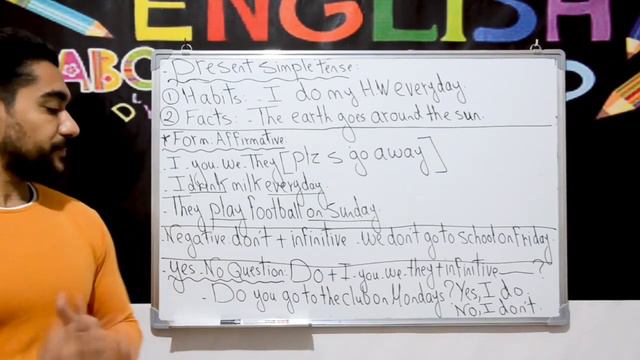 ENGLISH
ABC
D
. Present simple tense:
① Habits: . I do my HW everyday.
② Facts: . The earth goes around the sun.
* Form. Affirmative
. I . you . we . They [plz s go away]
. I drink milk everyday.
. They play football on Sunday.
. Negative. don't + infinitive . we don't go to school on Friday
. yes. No Question: Do + I . you . we . they + infinitive ?
. Do you go to the club on Mondays? Yes, I do.
No, I don't.